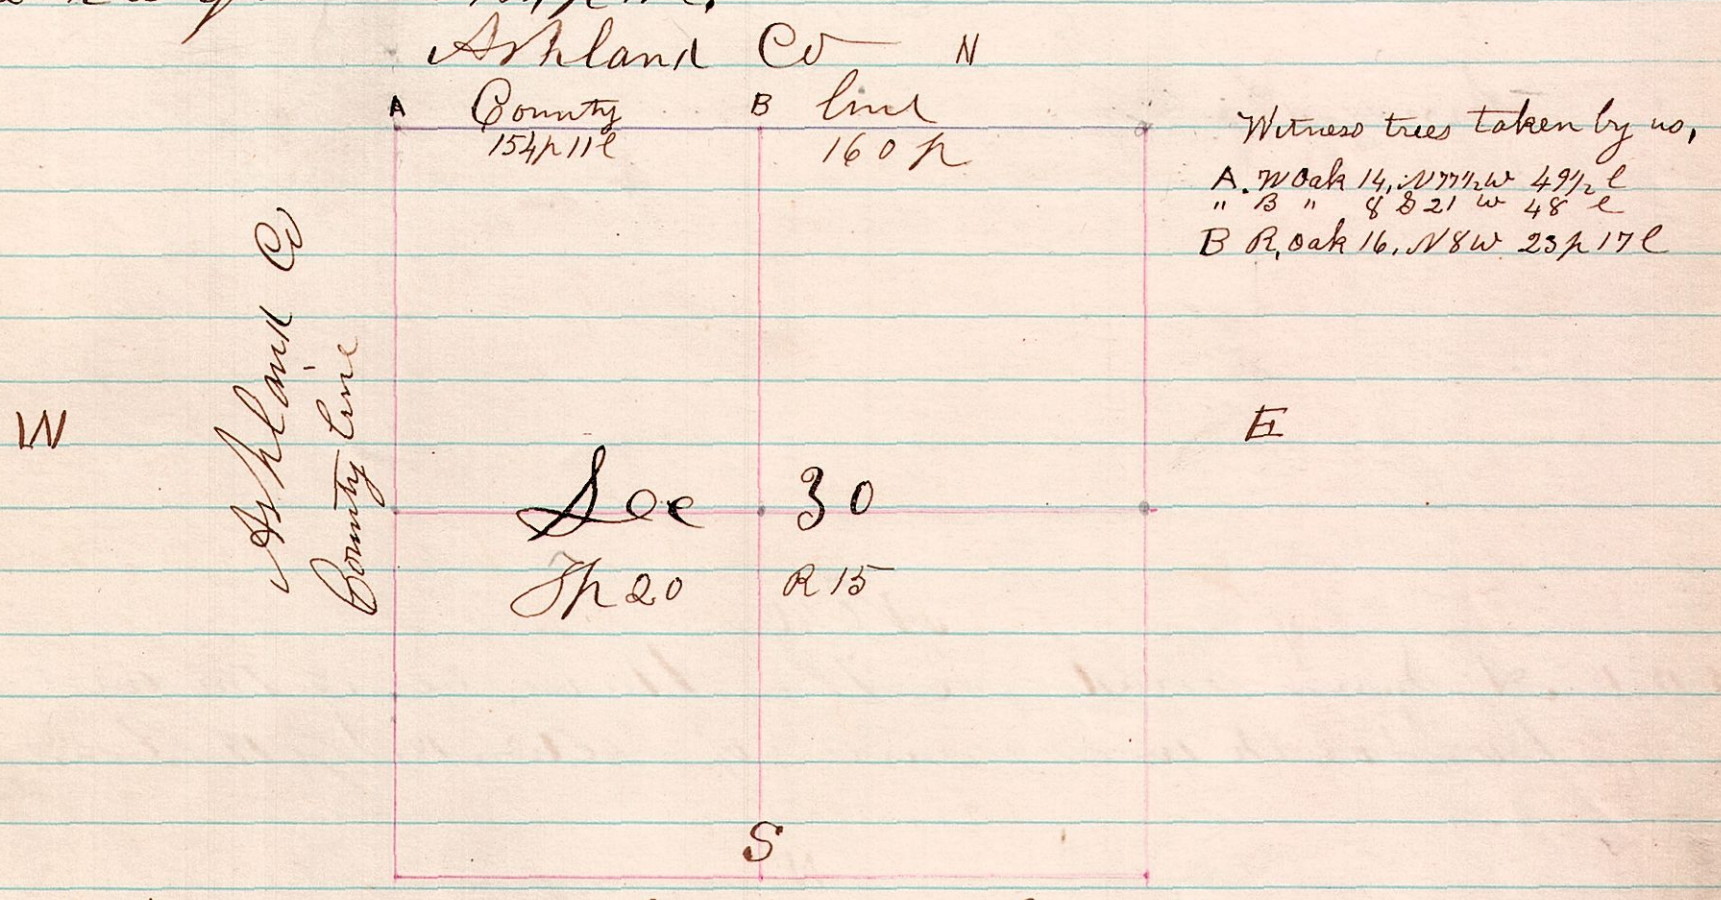 Ashland Co N
A County B line
154p 11l 160 p
Witness trees taken by us,
A. W Oak 14, N77½W 49½ l
" B " 8 S 21 W 48 l
B R, Oak 16, N8W 23p 17 l
Ashland Co
County line
W
E
Sec 30
Tp 20 R 15
S